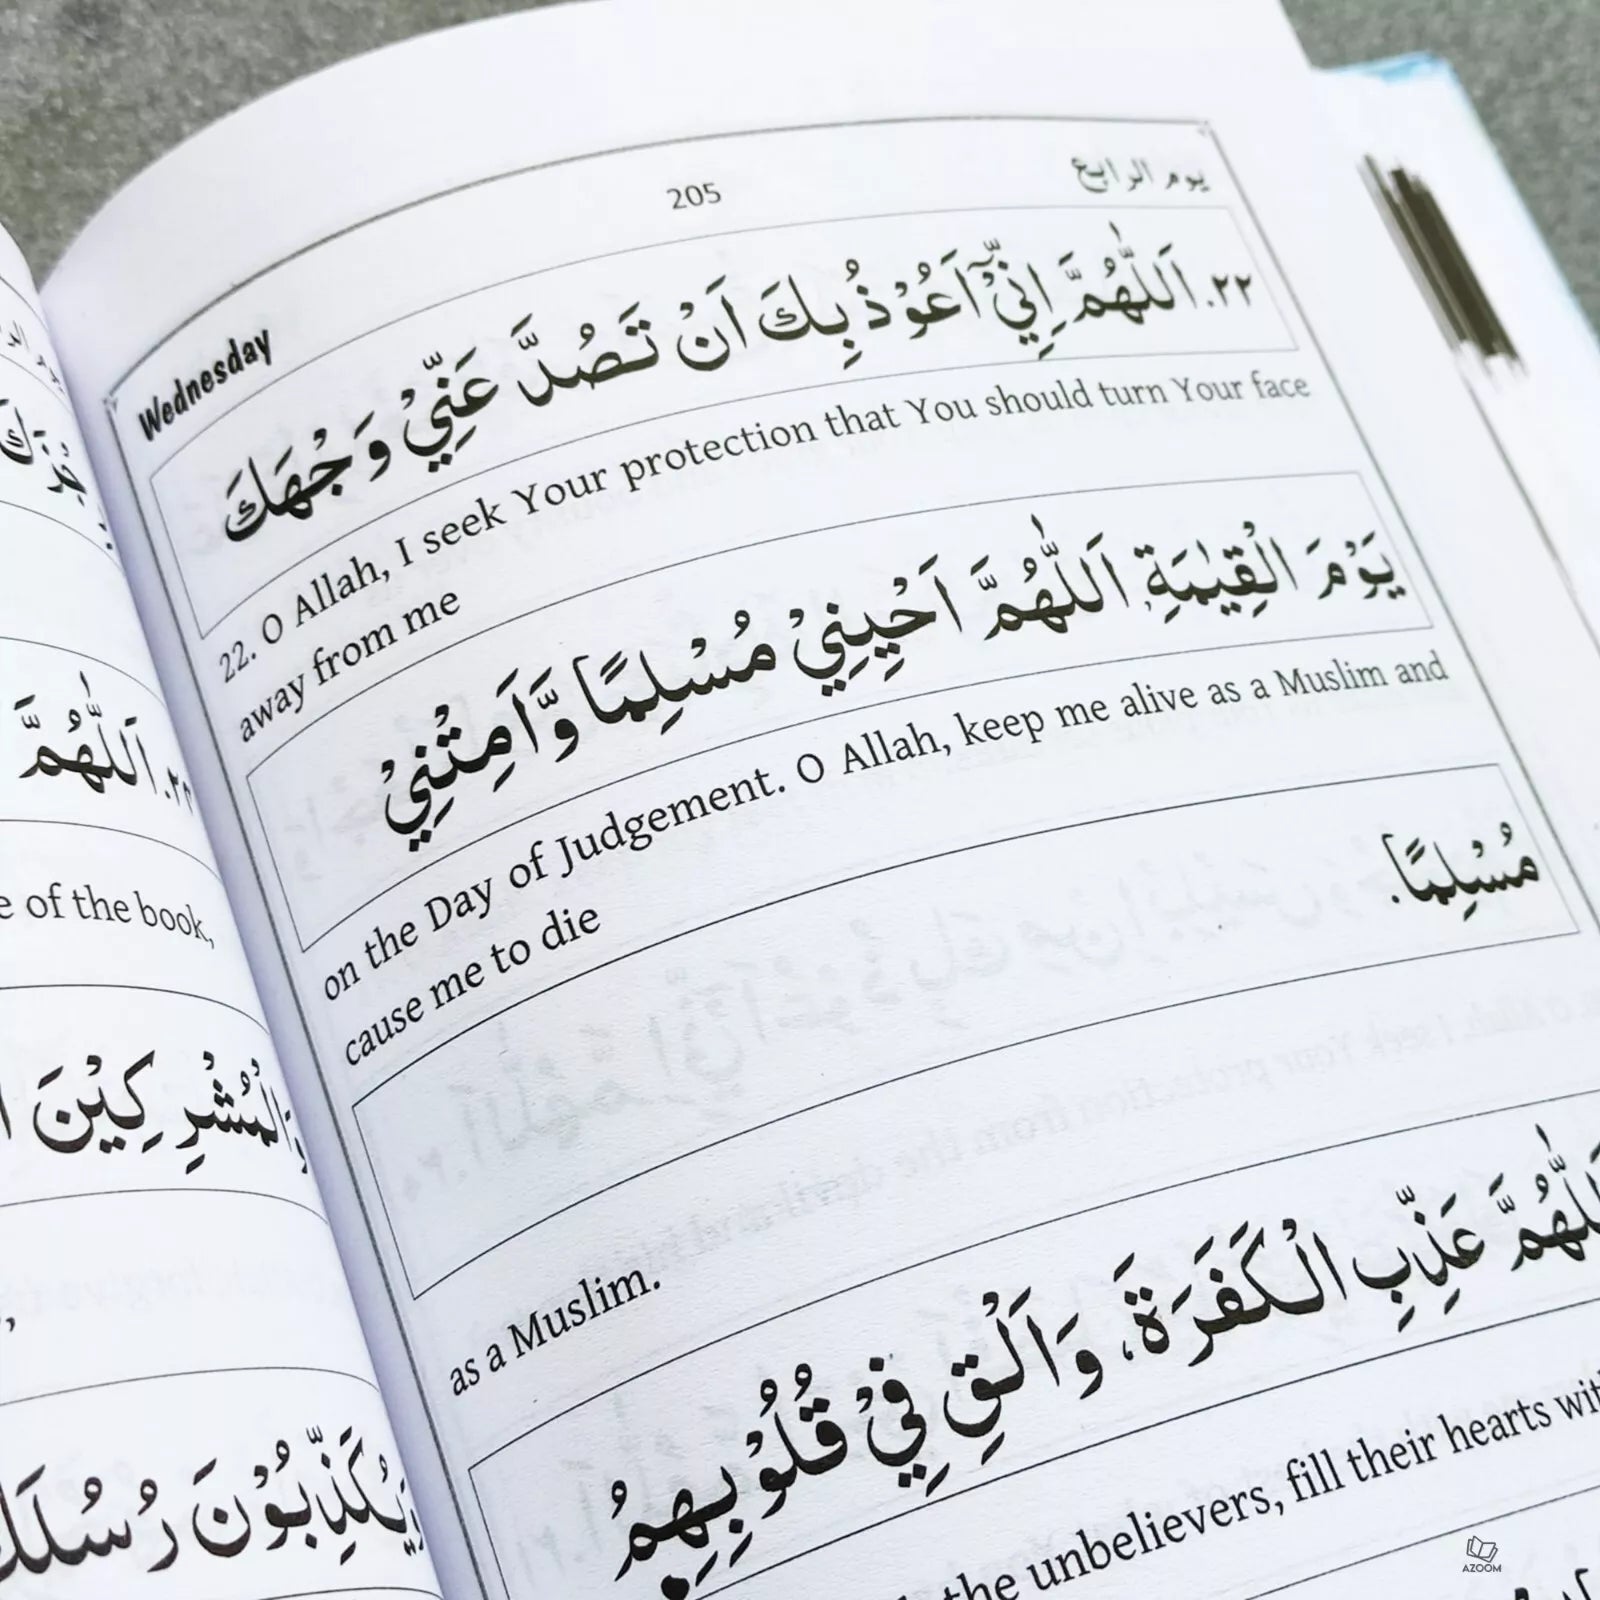 Wednesday 205 يوم الرابع
٢٢. اَللّٰهُمَّ اِنِّيْٓ اَعُوْذُ بِكَ اَنْ تَصُدَّ عَنِّيْ وَجْهَكَ
22. O Allah, I seek Your protection that You should turn Your face
away from me
يَوْمَ الْقِيٰمَةِ، اَللّٰهُمَّ اَحْيِنِيْ مُسْلِمًا وَّاَمِتْنِيْ
on the Day of Judgement. O Allah, keep me alive as a Muslim and
cause me to die
مُسْلِمًا.
as a Muslim.
عَذِّبِ الْكَفَرَةَ، وَاَلْقِ فِيْ قُلُوْبِهِمُ
the unbelievers, fill their hearts
اَللّٰهُمَّ
of the book,
وَالْمُشْرِكِيْنَ
يُكَذِّبُوْنَ رُسُلَكَ
AZOOM